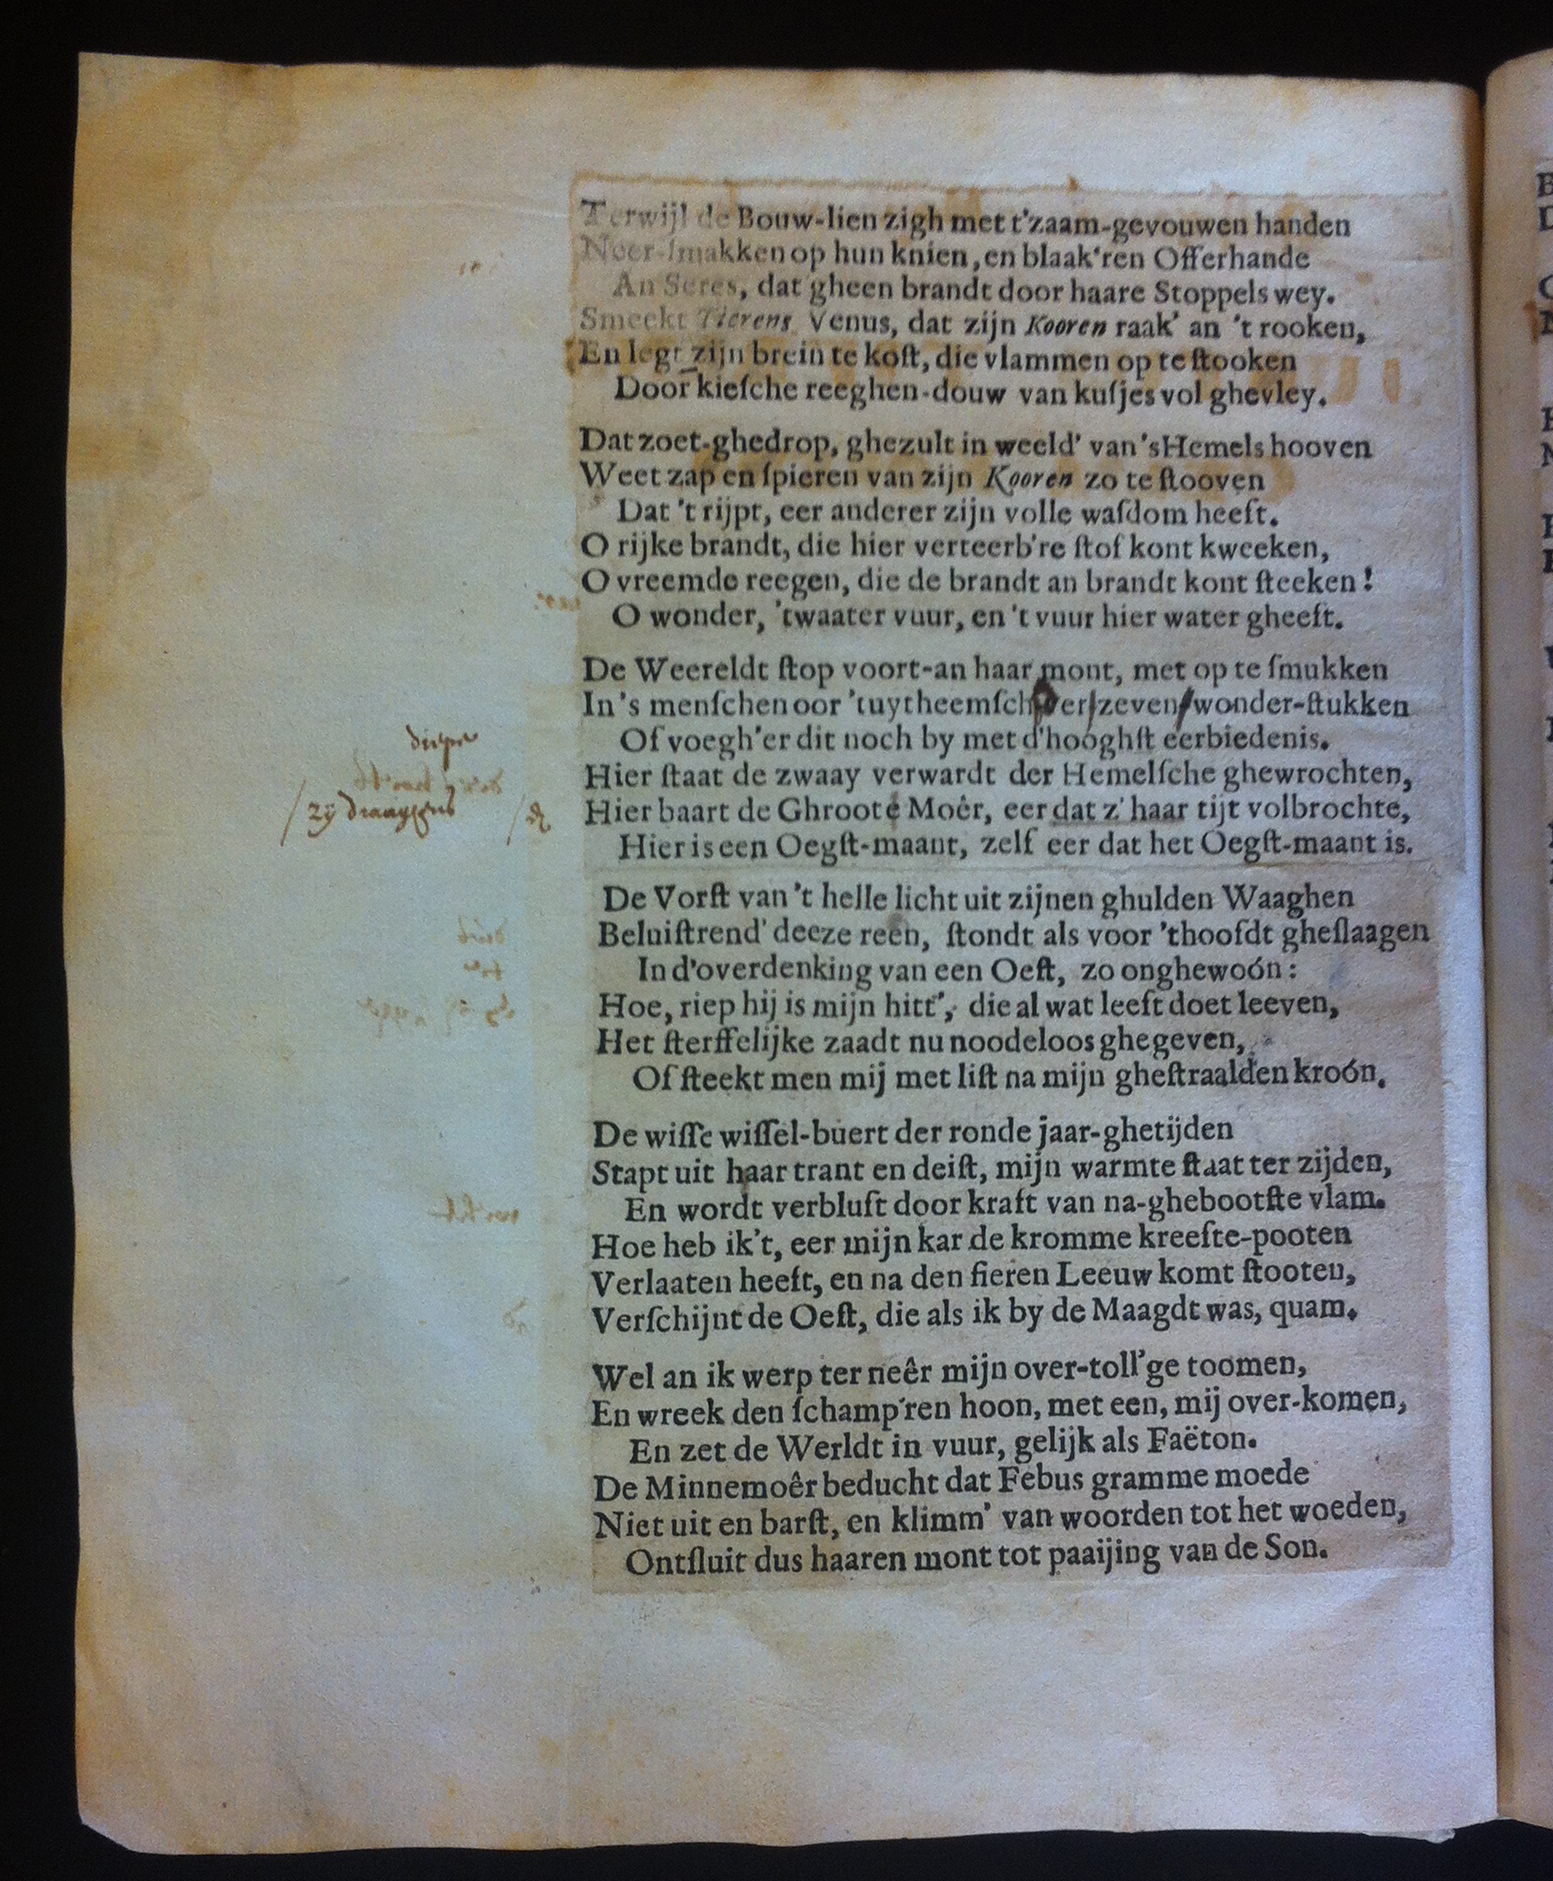 Terwijl de Bouw-lien zigh met t'zaam-gevouwen handen
Neer-ſmakken op hun knien, en blaak'ren Offerhande
An Seres, dat gheen brandt door haare Stoppels wey.
Smeekt Tierens Venus, dat zijn Kooren raak' an 't rooken,
En legt zijn brein te koſt, die vlammen op te ſtooken
Door kieſche reeghen-douw van kuſjes vol ghevley.
Dat zoet-ghedrop, ghezult in weeld' van 's Hemels hooven
Weet zap en ſpieren van zijn Kooren zo te ſtooven
Dat 't rijpt, eer anderer zijn volle waſdom heeft.
O rijke brandt, die hier verteerb're ſtof kont kweeken,
O vreemde reegen, die de brandt an brandt kont ſteeken!
O wonder, 'twaater vuur, en 't vuur hier water gheeft.
De Weereldt ſtop voort-an haar mont, met op te ſmukken
In 's menſchen oor 'tuytheemſch zeven wonder-ſtukken
Of voegh'er dit noch by met d'hooghſt eerbiedenis.
Hier ſtaat de zwaay verwardt der Hemelſche ghewrochten,
/ zy draagens / de
Hier baart de Ghroote Moêr, eer dat z' haar tijt volbrochte,
Hier is een Oegſt-maant, zelf eer dat het Oegſt-maant is.
De Vorſt van 't helle licht uit zijnen ghulden Waaghen
Beluiſtrend' deeze reên, ſtondt als voor 'thoofdt gheſlaagen
In d'overdenking van een Oeſt, zo onghewoón:
Hoe, riep hij is mijn hitt', die al wat leeft doet leeven,
Het ſterffelijke zaadt nu noodeloos ghegeven,
Of ſteekt men mij met liſt na mijn gheſtraalden kroón.
De wiſſe wiſſel-buert der ronde jaar-ghetijden
Stapt uit haar trant en deiſt, mijn warmte ſtaat ter zijden,
En wordt verbluft door kraft van na-ghebootſte vlam.
Hoe heb ik't, eer mijn kar de kromme kreefte-pooten
Verlaaten heeft, en na den fieren Leeuw komt ſtooten,
Verſchijnt de Oeſt, die als ik by de Maagdt was, quam.
Wel an ik werp ter neêr mijn over-toll'ge toomen,
En wreek den ſchamp'ren hoon, met een, mij over-komen,
En zet de Werldt in vuur, gelijk als Faëton.
De Minnemoêr beducht dat Febus gramme moede
Niet uit en barſt, en klimm' van woorden tot het woeden,
Ontſluit dus haaren mont tot paaijing van de Son.